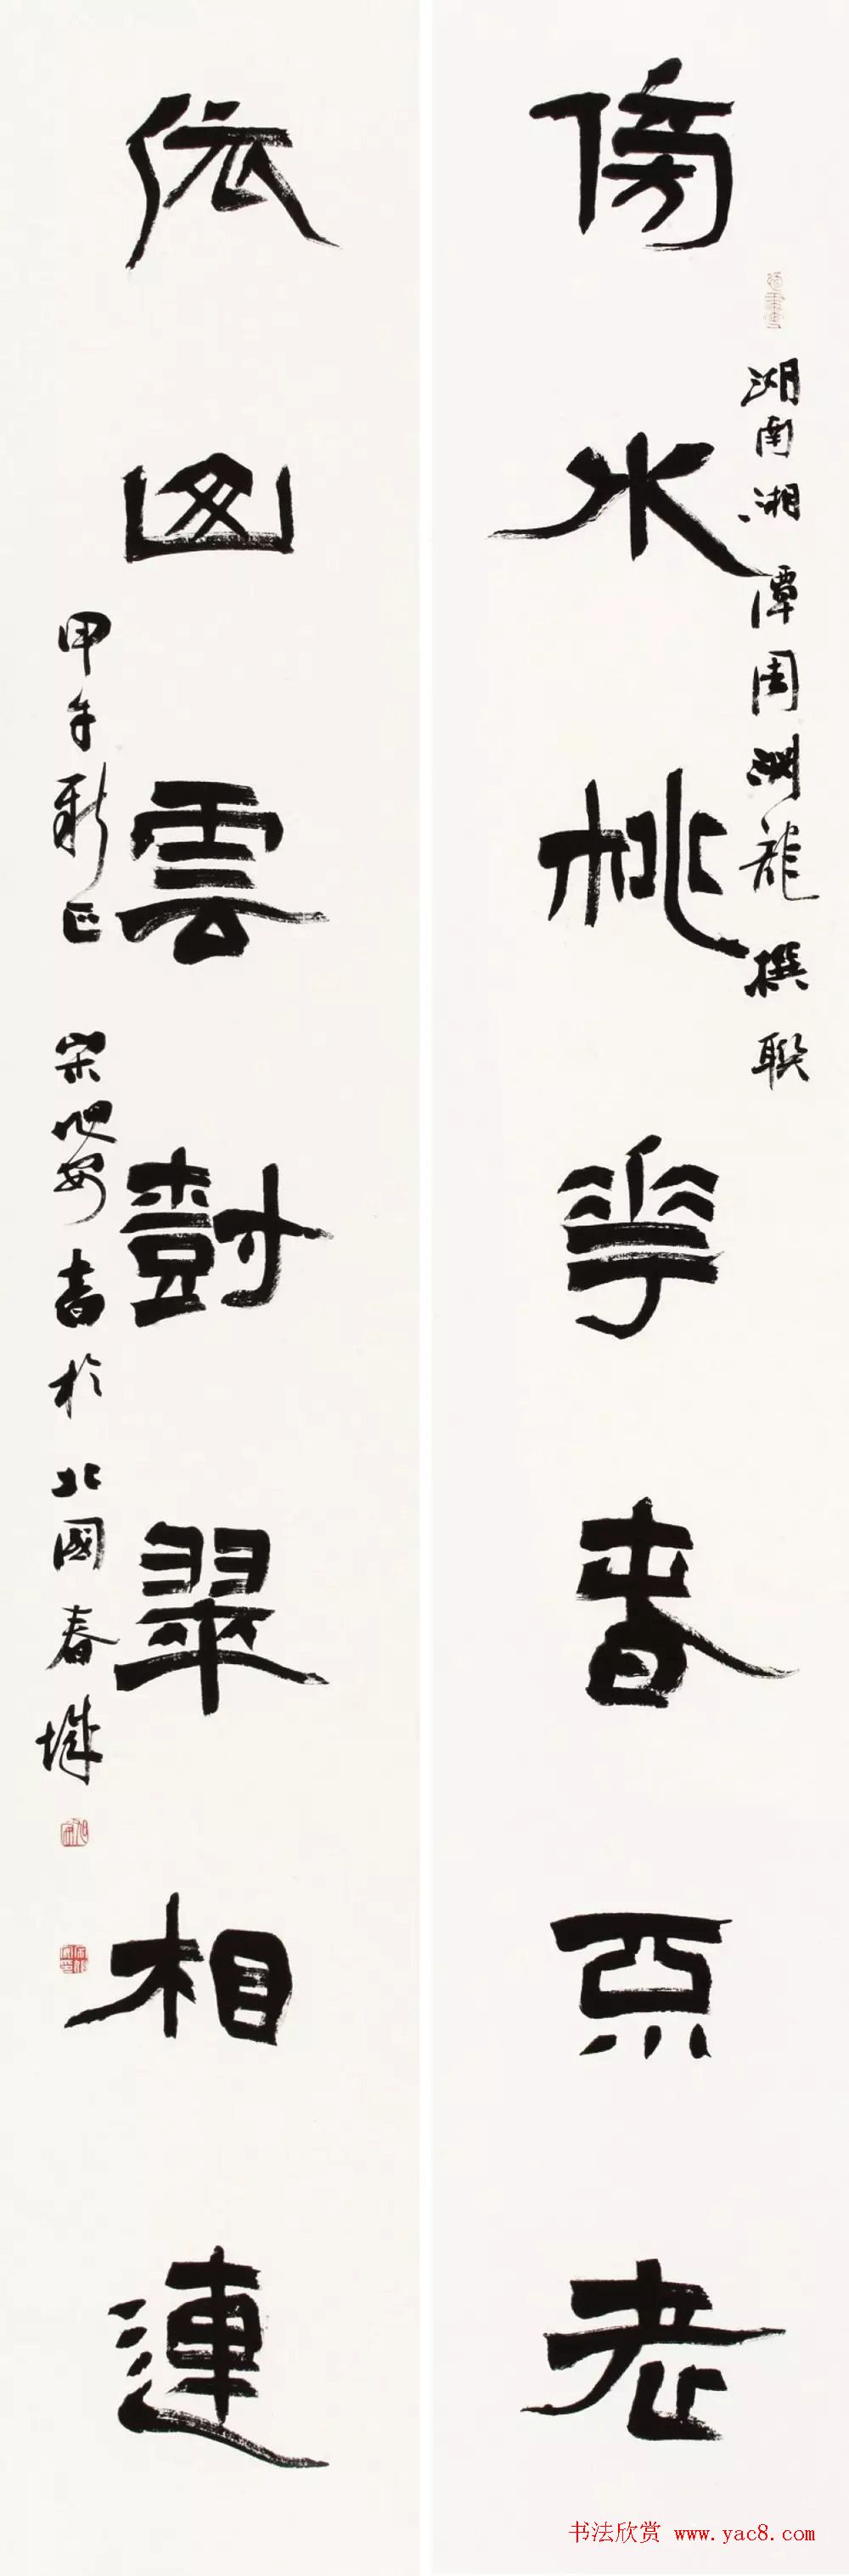 傍水桃花春不老
湖南湘潭周淵龍撰聯
依山雲樹翠相連
甲午新正 宋旭安書於北國春城
书法欣赏 www.yac8.com